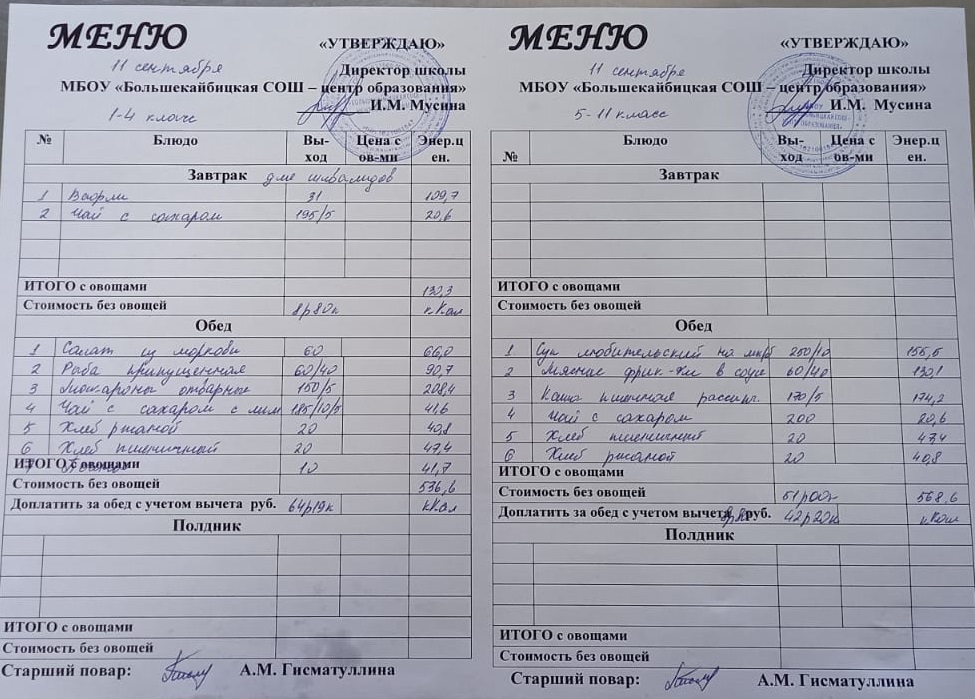 МЕНЮ
«УТВЕРЖДАЮ»
11 сентября
Директор школы
МБОУ «Большекайбицкая СОШ – центр образования»
И.М. Мусина
1-4 класс
№ Блюдо Вы-ход Цена с ов-ми Энер.цен.
Завтрак для инвалидов
1 Вафли 31 109,7
2 Чай с сахаром 195/5 20,6
ИТОГО с овощами 130,3
Стоимость без овощей 8р80к кКал
Обед
1 Салат из моркови 60 66,0
2 Рыба припущенная 60/40 90,7
3 Макароны отварные 150/5 208,4
4 Чай с сахаром с лим 185/10/5 41,6
5 Хлеб ржаной 20 40,8
6 Хлеб пшеничный 20 47,4
ИТОГО с овощами 10 41,7
Стоимость без овощей 536,6
Доплатить за обед с учетом вычета руб. 64р19к кКал
Полдник
ИТОГО с овощами
Стоимость без овощей
Старший повар: А.М. Гисматуллина
МЕНЮ
«УТВЕРЖДАЮ»
11 сентября
Директор школы
МБОУ «Большекайбицкая СОШ – центр образования»
И.М. Мусина
5-11 класс
№ Блюдо Вы-ход Цена с ов-ми Энер.цен.
Завтрак
ИТОГО с овощами
Стоимость без овощей
Обед
1 Суп любительский на мк/б 250/10 155,5
2 Мясные фрик-ки в соусе 60/40 130,1
3 Каша пшенная рассып. 170/5 174,2
4 Чай с сахаром 200 20,6
5 Хлеб пшеничный 20 47,4
6 Хлеб ржаной 20 40,8
ИТОГО с овощами
Стоимость без овощей 51р00к 568,6
Доплатить за обед с учетом вычета руб. 42р20к кКал
Полдник
ИТОГО с овощами
Стоимость без овощей
Старший повар: А.М. Гисматуллина